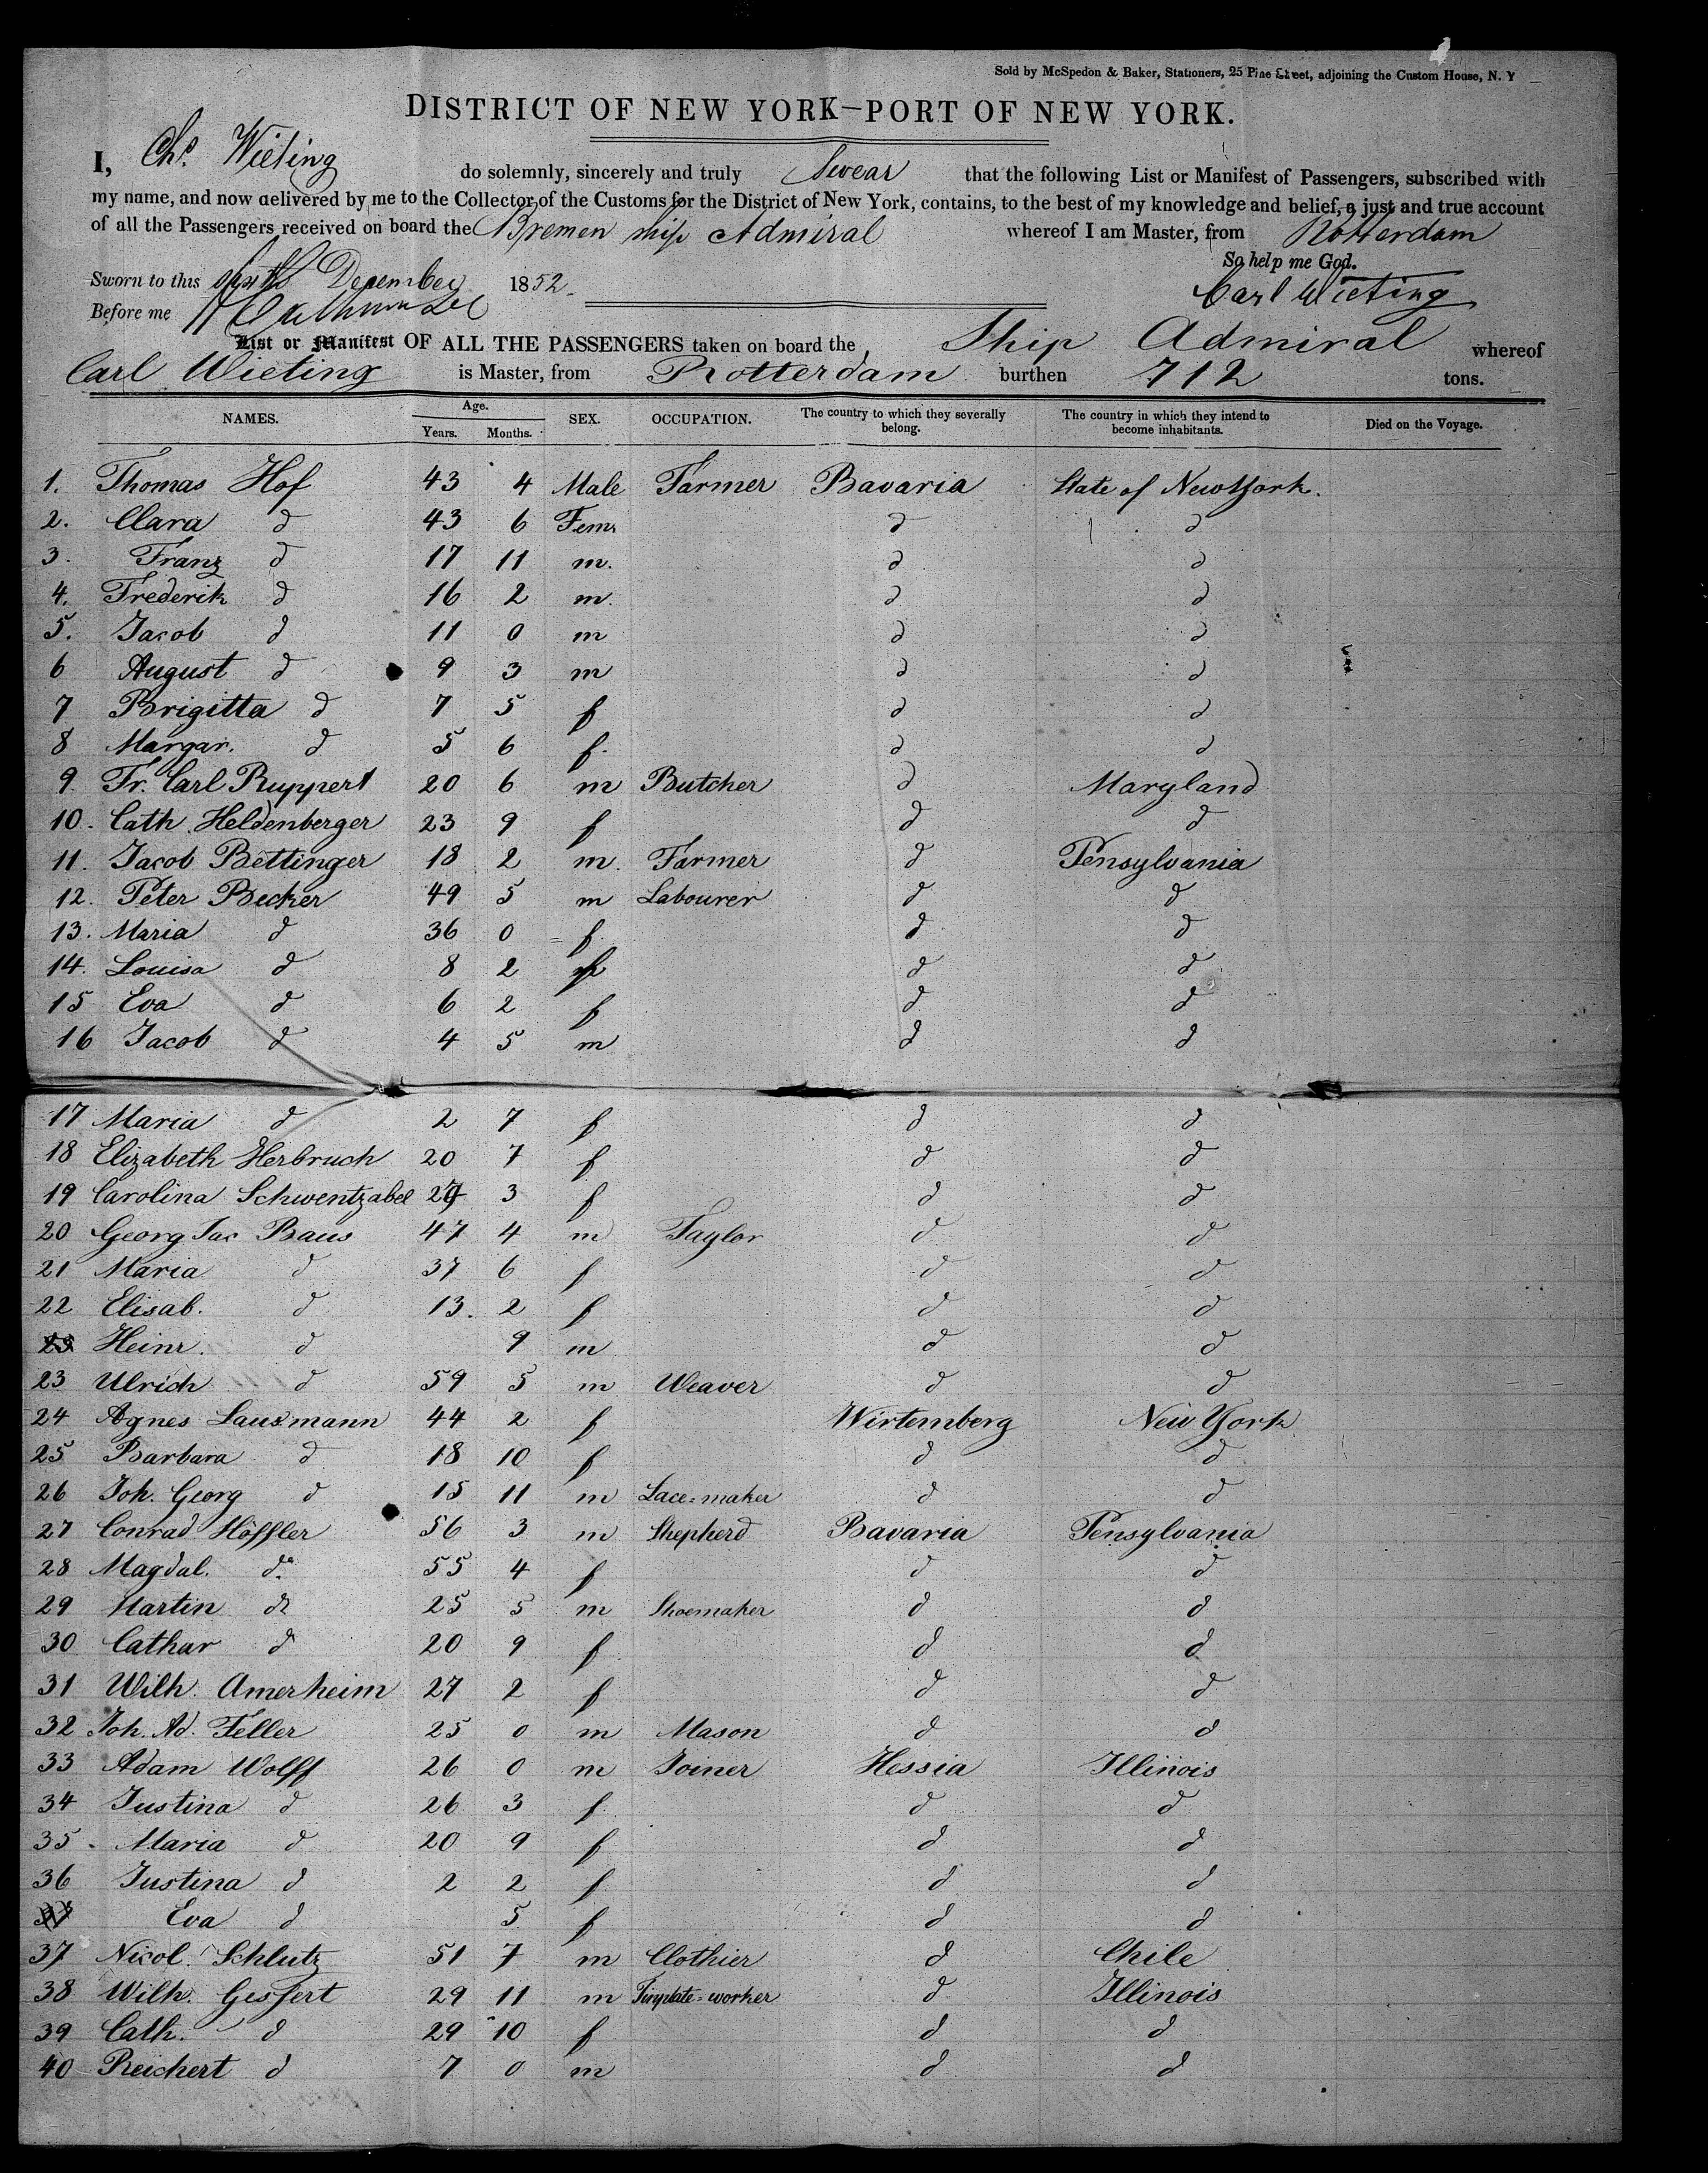 Sold by McSpedon & Baker, Stationers, 25 Pine Street, adjoining the Custom House, N. Y
DISTRICT OF NEW YORK—PORT OF NEW YORK.
I, Chs. Wieting do solemnly, sincerely and truly Swear that the following List or Manifest of Passengers, subscribed with
my name, and now delivered by me to the Collector of the Customs for the District of New York, contains, to the best of my knowledge and belief, a just and true account
of all the Passengers received on board the Bremen ship Admiral whereof I am Master, from Rotterdam
So help me God.
Sworn to this sixth December 1852.
Carl Wieting
Before me
List or Manifest OF ALL THE PASSENGERS taken on board the Ship Admiral whereof
Carl Wieting is Master, from Rotterdam burthen 712 tons.
NAMES. Age. Years. Months. SEX. OCCUPATION. The country to which they severally belong. The country in which they intend to become inhabitants. Died on the Voyage.
1. Thomas Hof 43 4 Male Farmer Bavaria State of New York.
2. Clara d 43 6 Fem. d d
3. Franz d 17 11 m. d d
4. Frederik d 16 2 m. d d
5. Jacob d 11 0 m d d
6 August d 9 3 m d d
7 Brigitta d 7 5 f d d
8 Margar. d 5 6 f. d d
9. Fr. Carl Ruppert 20 6 m Butcher d Maryland
10. Cath. Heldenberger 23 9 f d d
11. Jacob Bettinger 18 2 m. Farmer d Pensylvania
12. Peter Becker 49 5 m Labourer d d
13. Maria d 36 0 f. d d
14. Louisa d 8 2 f d d
15 Eva d 6 2 f d d
16 Jacob d 4 5 m d d
17 Maria d 2 7 f d d
18 Elizabeth Herbruch 20 7 f d d
19 Carolina Schwentzabel 3 f d d
20 Georg Jac Baus 47 4 m Taylor d d
21 Maria d 37 6 f d d
22 Elisab. d 13. 2 f d d
23 Heinr. d 9 m d d
23 Ulrich d 59 5 m Weaver d d
24 Agnes Lausmann 44 2 f Wirtemberg New York
25 Barbara d 18 10 f d d
26 Joh. Georg d 15 11 m Lace=maker d d
27 Conrad Höffler 56 3 m Shepherd Bavaria Pensylvania
28 Magdal. do. 55 4 f d d
29 Martin do 25 5 m Shoemaker d d
30 Cathar d 20 9 f d d
31 Wilh. Amerheim 27 2 f d d
32 Joh. Ad. Feller 25 0 m Mason d d
33 Adam Wolff 26 0 m Joiner Hessia Illinois
34 Justina d 26 3 f. d d
35. Maria d 20 9 f d d
36 Justina d 2 2 f d d
37 Eva d 5 f d d
37 Nicol. Schlutz 51 7 m Clothier d Chile
38 Wilh. Gessert 29 11 m Tinplate=worker d Illinois
39 Cath. d 29 10 f d d
40 Reichert d 7 0 m d d